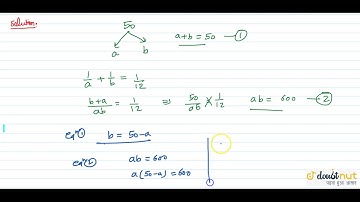 Solution.
50
a b
a+b = 50 — ①
1/a + 1/b = 1/12
b+a/ab = 1/12 ⇒ 50/ab × 1/12 ab = 600 — ②
eqⁿ① b = 50-a
eqⁿ② ab = 600
a(50-a) = 600
doubtnut